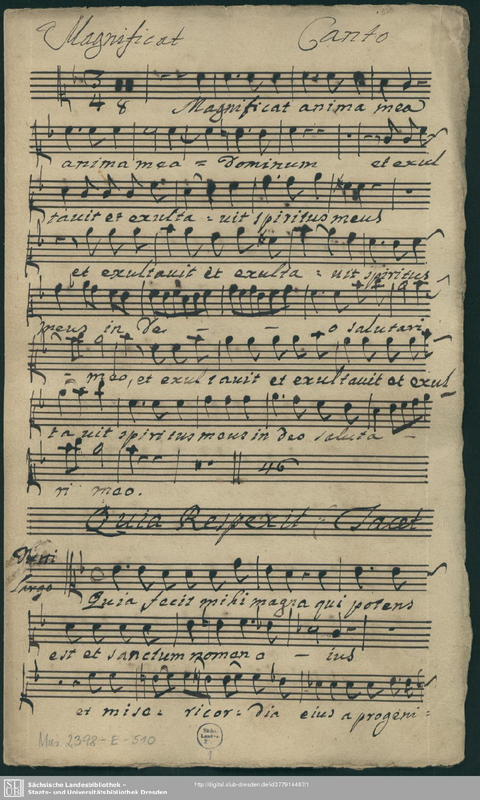 Magnificat Canto
3 4 8
Magnificat anima mea
anima mea = Dominum et exul
tauit et exulta = uit spiritus meus
et exultauit et exulta = uit spiritus
meus in De - - o salutari
- meo, et exultauit et exultauit et exul
tauit spiritus meus in deo saluta -
ri meo.
46
Quia Respexit = Tacet
Largo
Quia fecit mihi magna qui potens
est et sanctum nomen e - ius
et mise = ricor = dia eius a progeni =
Mus. 2398-E-510
Sächsische Landesbibliothek -
Staats- und Universitätsbibliothek Dresden
http://digital.slub-dresden.de/id377914487/1